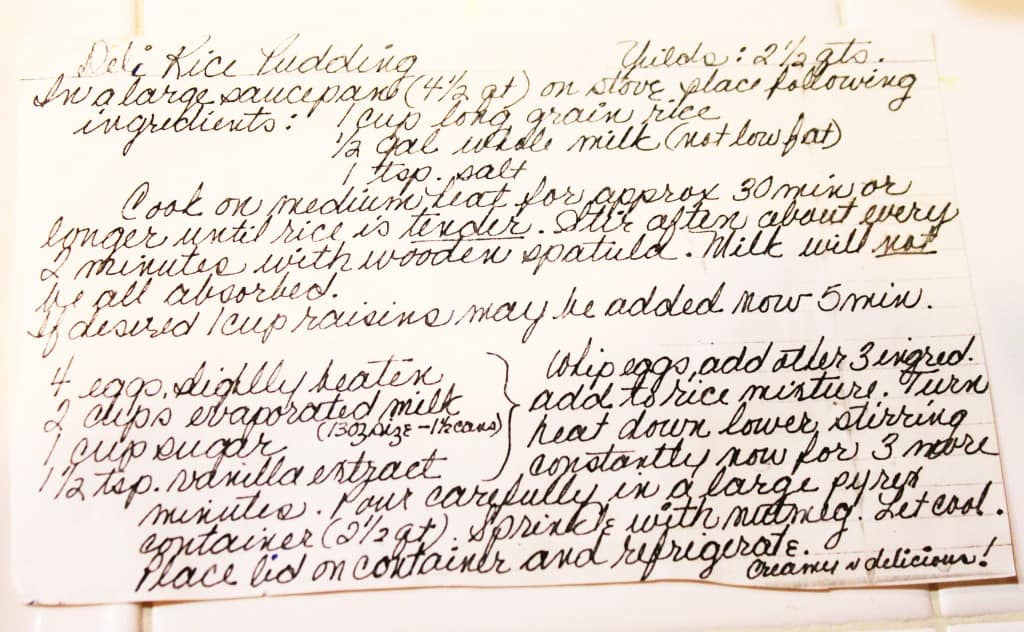 Deli Rice Pudding Yeilds: 2 1/2 qts.
In a large saucepan (4 1/2 qt) on stove place following
ingredients: 1 cup long grain rice
1/2 gal whole milk (not low fat)
1 tsp. salt
Cook on medium heat for approx 30 min or
longer until rice is tender. Stir often about every
2 minutes with wooden spatula. Milk will not
be all absorbed.
If desired 1 cup raisins may be added now 5 min.
4 eggs, slightly beaten
2 cups evaporated milk
(13 oz size - 1 1/2 cans)
1 cup sugar
1 1/2 tsp. vanilla extract
Whip eggs, add other 3 ingred.
add to rice mixture. Turn
heat down lower, stirring
constantly now for 3 more
minutes. Pour carefully in a large pyrex
container (2 1/2 qt). Sprinkle with nutmeg. Let cool.
Place lid on container and refrigerate.
Creamy n delicious!